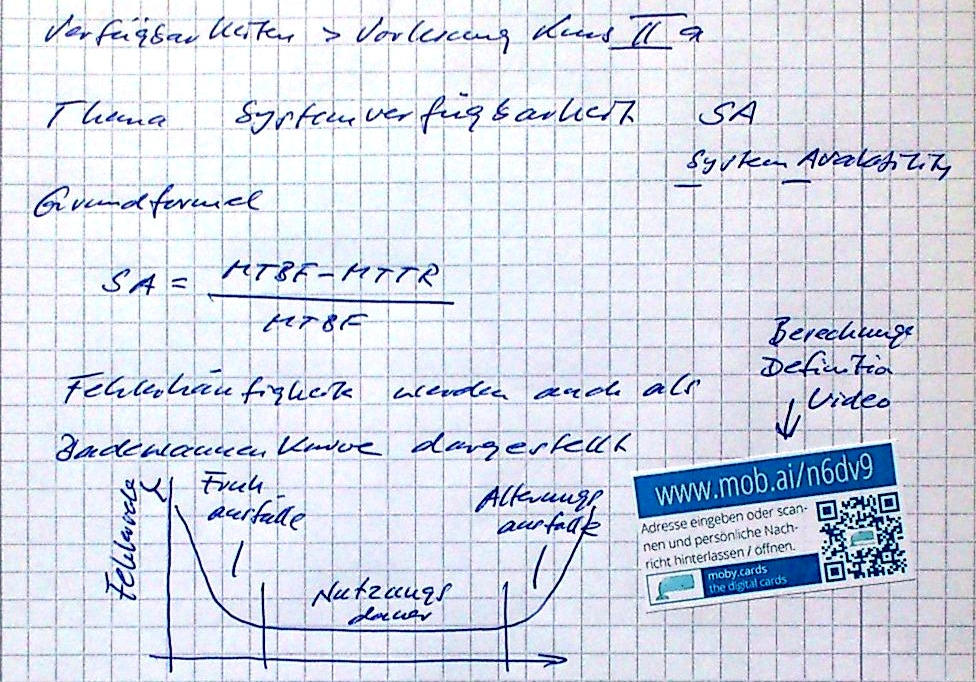 Verfügbarkeiten > Vorlesung Kurs II a
Thema Systemverfügbarkeit SA
System Availability
Grundformel
SA = MTBF - MTTR
MTBF
Berechnungs
Definition
Video
Fehlerhäufigkeit werden auch als
Badewannen Kurve dargestellt
Früh
ausfälle
Alterungs
ausfälle
Fehlerrate
Nutzungs
dauer
www.mob.ai/n6dv9
Adresse eingeben oder scan-
nen und persönliche Nach-
richt hinterlassen / öffnen.
moby.cards
the digital cards